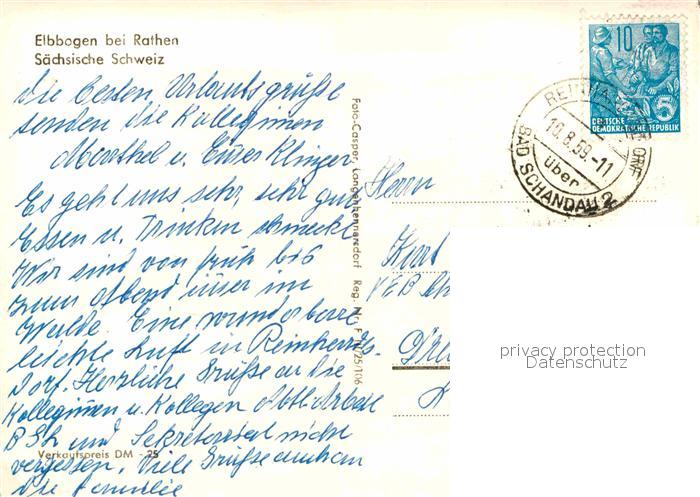 Elbbogen bei Rathen
Sächsische Schweiz
die besten Urlaubsgrüße
senden die Kolleginnen
Marthel u. Klinger
Es geht uns sehr, sehr gut
Essen u. Trinken schmeckt
Wir sind von früh bis
zum Abend nur im
Walde. Eine wunderbare
leichte Luft in Reinhards-
dorf. Herzliche Grüße an die
Kolleginnen u. Kollegen Abtl. Arbeit
BSL und Sekretariat nicht
Verkaufspreis DM -.25
vergessen. Viele Grüße auch an
die Familie
Foto-Casper, Langenhennersdorf Reg. Nr. F
Herrn
Kurt
VEB
10
5
DEUTSCHE
DEMOKRATISCHE REPUBLIK
10.8.59.-11
über
BAD SCHANDAU 2
privacy protection
Datenschutz